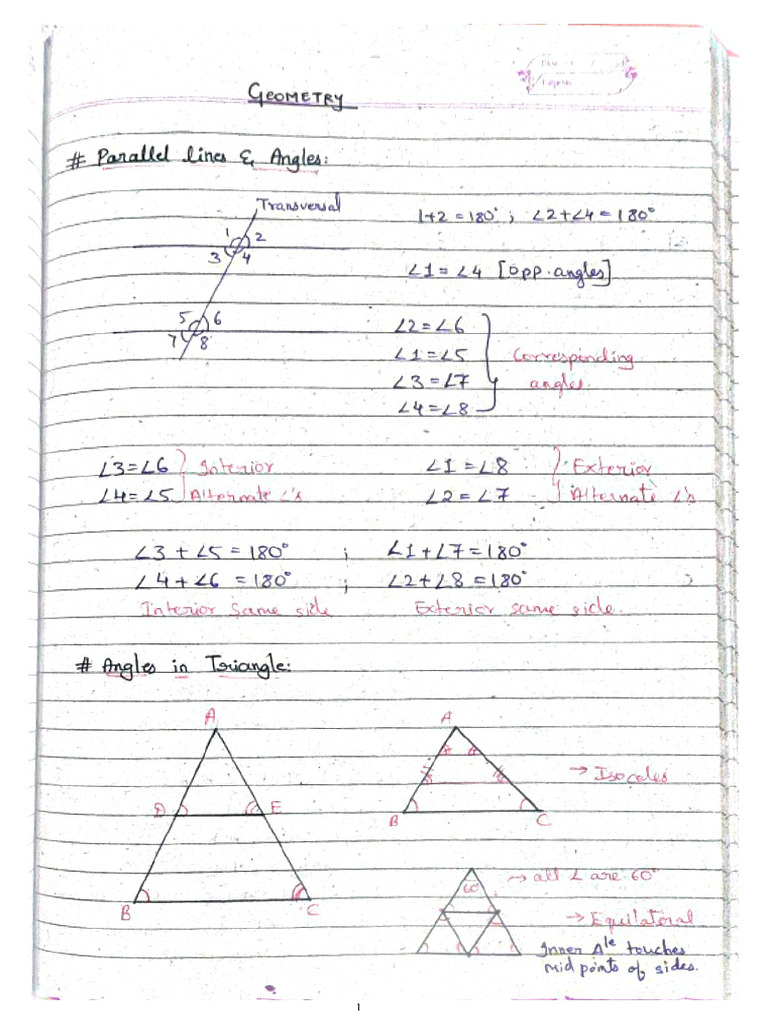 GEOMETRY
# Parallel lines & Angles:
Transversal
1 2
3 4
5 6
7 8
1+2=180° ; ∠2+∠4=180°
∠1=∠4 [Opp. angles]
∠2=∠6
∠1=∠5
∠3=∠7
∠4=∠8
Corresponding
angles.
∠3=∠6 Interior
∠4=∠5 Alternate ∠'s
∠1=∠8 Exterior
∠2=∠7 Alternate ∠'s
∠3+∠5=180° ; ∠1+∠7=180°
∠4+∠6=180° ; ∠2+∠8=180°
Interior Same side Exterior same side.
# Angles in Triangle:
A
D E
B C
A
→ Isoceles
B C
60°
→ all ∠ are 60°
→ Equilateral
Inner Δle touches
mid points of sides.
1